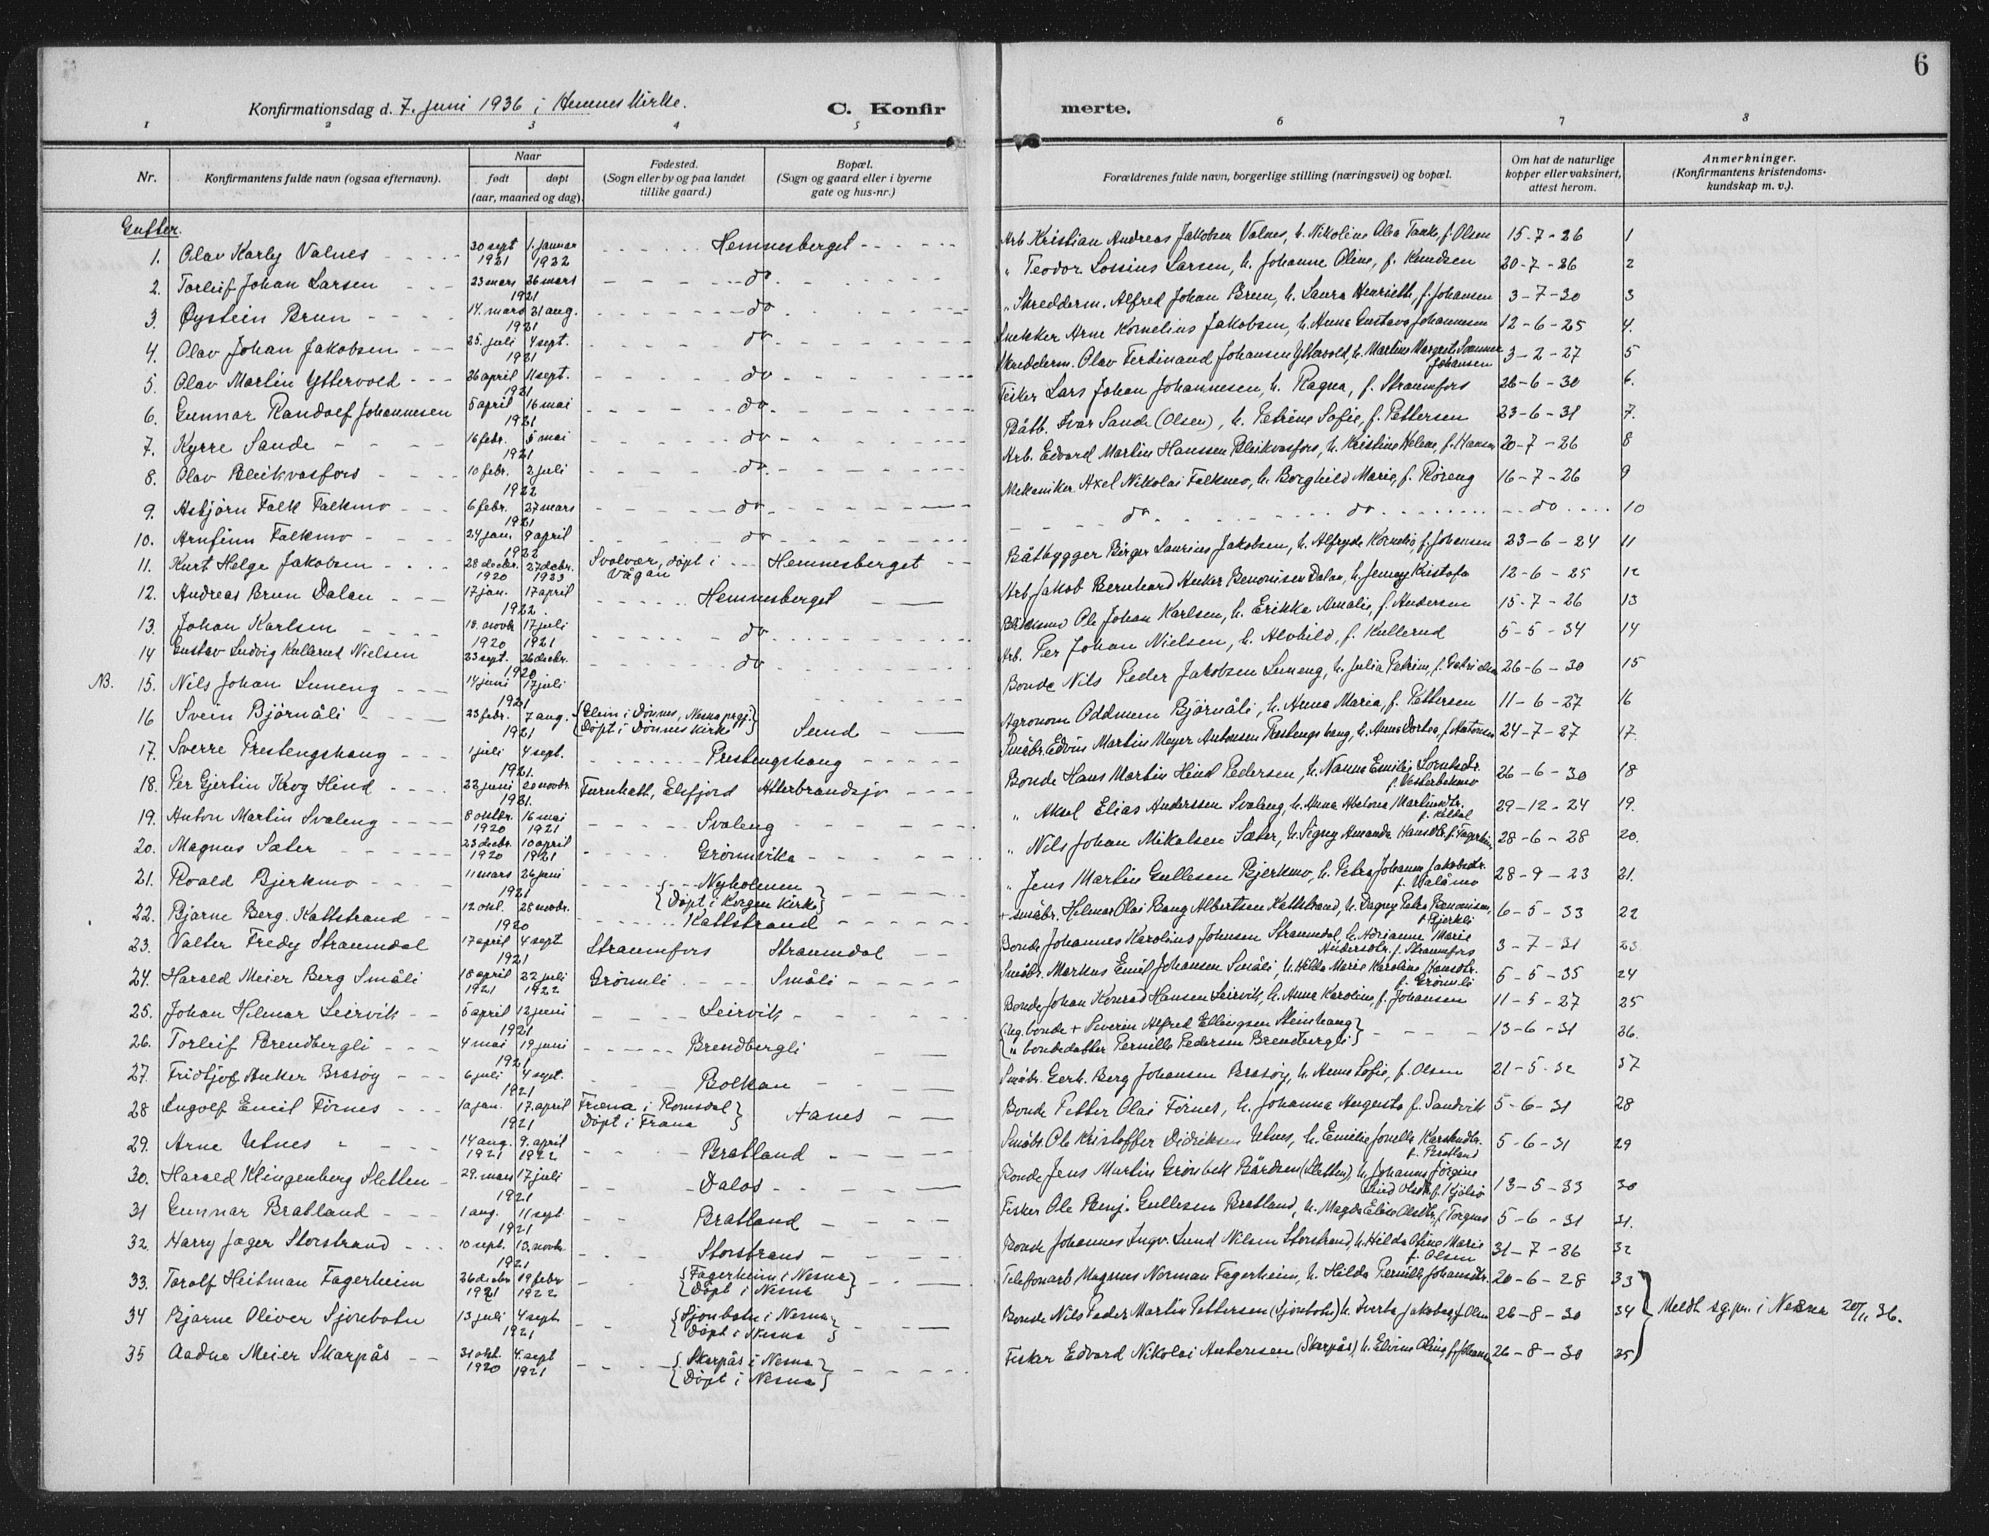 6
Konfirmationsdag d. 7. juni 1936 i Hemnes Kirke.
C. Konfirmerte.
1 2 3 4 5 6 7 8
Nr.
Konfirmantens fulde navn (ogsaa efternavn).
Naar
født døpt
(aar, maaned og dag).
Fødested.
(Sogn eller by og paa landet
tillike gaard.)
Bopæl.
(Sogn og gaard eller i byerne
gate og hus-nr.)
Forældrenes fulde navn, borgerlige stilling (næringsvei) og bopæl.
Om hat de naturlige
kopper eller vaksinert,
attest herom.
Anmerkninger.
(Konfirmantens kristendoms-
kundskap m. v.).
Gutter.
1. Olav Karly Valnes 30 sept 1921 1. januar 1922 Hemnesberget Arb. Kristian Andreas Jakobsen Valnes, h. Nikoline Olea Tank, f. Olsen 15-7-26 1
2. Torleif Johan Larsen 23 mars 26 mars 1921 do " Teodor Lossius Larsen, h. Johanne Oline, f. Knudsen 20-7-26 2
3. Øystein Brun 14. mars 21 aug. 1921 do " Skredderm. Alfred Johan Brun, h. Laura Henriette, f. Johansen 3-7-30 3
4. Olav Johan Jakobsen 25. juli 4 sept. 1921 do Snekker Arne Kornelius Jakobsen, h. Anna Gustava Johannesen 12-6-25 4.
5. Olav Martin Yttervold 26 april 11 sept. 1921 do Skredderm. Olav Ferdinand Johansen Yttervold, h. Martine Margrete Johansen 3-2-27 5
6. Gunnar Randolf Johannesen 5 april 16 mai 1921 do Fisker Lars Johan Johannesen, h. Ragna, f. Straumfors 26-6-30 6.
7. Kyrre Sande 16 febr. 5 mai 1921 do Båtb. Ivar Sande (Olsen), h. Petrine Sofie, f. Pettersen 23-6-31 7.
8. Olav Bleikvasfors 10 febr. 2 juli 1922 do Arb. Edvard Martin Hanssen Bleikvasfors, h. Kristine Helene, f. Hansen 20-7-26 8
9. Asbjørn Falk Falkmo 6 febr. 27 mars 1921 do Mekaniker Axel Nikolai Falkmo, h. Borghild Marie, f. Røreng 16-7-26 9
10. Arnfinn Falkmo 24 jan. 9 april 1922 do do do do 10
11. Kurt Helge Jakobsen 28 decbr. 1920 27 decbr. 1923 Svolvær, døpt i Vågan Hemnesberget Båtbygger Birger Laurius Jakobsen, h. Alfryde Kornelia, f. Johansen 23-6-24 11
12. Andreas Brun Dalan 17 jan. 17 april 1922. Hemnesberget Arb. Jakob Bernhard Anker Benonisen Dalan, h. Jenny Kristofa 12-6-25 12
13. Johan Karlsen 18. novbr 1920 17 juli 1921 do Ole Johan Karlsen, h. Erikka Amalie, f. Andersen 15-7-26 13
14 Gustav Ludvig Kullerud Nielsen 23 sept. 26 decbr. 1920 do Arb. Per Johan Nielsen, h. Alvhild, f. Kullerud 5-5-34 14
NB. 15. Nils Johan Luneng 14 juni 17 juli 1921 Bonde Nils Peder Jakobsen Luneng, h. Julia Petrine, f. 26-6-30 15
16 Svein Bjørnåli 23 febr. 7 aug. 1921 Glein i Dønnes, Nesna prgj. Døpt i Dønnes kirke Sund Agronom Oddmun Bjørnåli, h. Anna Maria, f. Pettersen 11-6-27 16
17. Sverre Prestengshaug 1 juli 4 sept. 1921. Prestengshaug Småbr. Edvin Martin Meyer Antonsen Prestengshaug, h. Anna Dortea, f. Antonsen 24-7-27 17.
18. Per Gjertin Krog Hind 22 juni 20 novbr. 1921. Furuhatt, Elsfjord Atterbrandsjo Bonde Hans Martin Hind Pedersen, h. Nanna Emilie f. Vesterbekmo 26-6-30 18
19. Anton Martin Svaleng 8 oktbr. 1920 16 mai 1921 Svaleng " Aksel Elias Anderssen Svaleng, h. Anna Martinsdtr. 29-12-24 19.
20. Magnus Sæter 23 decbr. 1920 10 april 1921 Grønnvika " Nils Johan Mikalsen Sæter, h. Signy Amanda Hansdtr. 28-6-28 20.
21. Roald Bjerkmo 11 mars 26 juni 1921 Nyholmen Døpt i Korgen Kirke " Jens Martin Gullesen Bjerkmo, h. Petra Johanna Jakobsdtr. f. Valåmo 28-9-23 21.
22. Bjarne Berg. Kattstrand 12 okt. 28 novbr. 1920 Kattstrand + småbr. Hilmar Olai Bang Albertsen Kattstrand, h. Dagny Petra Benonisen, f. Bjerkli 6-5-33 22
23. Valter Fredy Straumdal 17 april 4 sept 1921 Straumfors Straumdal Bonde Johannes Karolius Johnsen Straumdal, h. Adrianne Marie Andersdtr. f. Straumfors 3-7-31 23
24. Harald Meier Berg Småli 18 april 1921 22 juli 1922 Grønnli Småli Småbr. Markus Emil Johansen Småli, h. Hilda Marie Karoline Hansdtr. f. Grønnli 5-5-35 24
25. Johan Hilmar Leirvik 5 april 12 juni 1921 Leirvik Bonde Johan Konrad Hansen Leirvik, h. Anna Karoline, f. Johansen 11-5-27 25
26. Torleif Brendbergli 4 mai 19 juni 1921 Brendbergli Ug. bonde + Severin Alfred Ellingsen Steinhaug " bondedatter Pernille Pedersen Brendbergli 13-6-31 26.
27. Fridtjof Anker Brasøy 6 juli 4 sept. 1921 Bolkan Småbr. Gerh. Berg Johansen Brasøy, h. Anne Sofie, f. Olsen 21-5-32 27
28 Ingolf Emil Førnes 10 jan. 17. april 1921 Fræna i Romsdal Døpt i Fræna Hanes Bonde Petter Olai Førnes, h. Johanna Augusta f. Sandvik 5-6-31 28
29. Arne Utnes 14 aug. 1921 9. april 1922 Bratland Småbr. Ole Kristoffer Didriksen Utnes, h. Emilie Jonette Karstendtr. f. Bratland 5-6-31 29
30. Harald Klingenberg Sletten 29. mars 17 juli 1921 Dalos Bonde Jens Martin Grønbek Bårdsen (Sletten), h. Johanna Jørgine 13-5-33 30
31 Gunnar Bratland 1 aug. 11 sept. 1921 Bratland Fisker Ole Benj. Gullesen Bratland, h. Magda Elise Olsdtr. f. Torgnes 5-6-31 31.
32. Harry Jager Storstrand 10 sept. 13. novbr 1921 Storstrand Bonde Johannes Ingv. Lund Nilsen Storstrand, h. Hilda Oline Marie f. Olsen 31-7-26 32
33. Torolf Heitman Fagerheim 26 decbr 1921 19 febr 1922 Fagerheim i Nesna Døpt i Nesna Telefonarb Magnus Norman Fagerheim, h. Hilda Pernille Johansdtr. 20-6-28 33
34 Bjarne Oliver Sjonbotn 13 juli 4 sept. 1921 Sjonbotn i Nesna Døpt i Nesna Bonde Nils Peder Martin Pettersen (Sjonbotn) h. Iverba Jakobea, f. Olsen 26-8-30 34 Meldt sg. pr. i Nesna 20/11 36.
35 Aadne Meier Skarpås 31 okt. 1920 4. sept 1921 Skarpås i Nesna Døpt i Nesna Fisker Edvard Nikolai Antonsen (Skarpås), h. Elvine Oline, f. Johansen 26-8-30 35